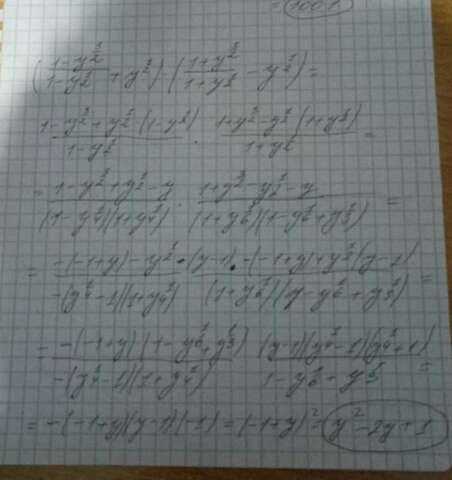 = 1001
(1-y^{3/2}/1-y^{1/2} + y^{1/2}) · (1+y^{3/2}/1+y^{1/2} - y^{1/2}) =
1-y^{3/2}+y^{1/2}·(1-y^{1/2})/1-y^{1/2} · 1+y^{3/2}-y^{1/2}(1+y^{1/2})/1+y^{1/2} =
= 1-y^{3/2}+y^{1/2}-y/(1-y^{1/4})(1+y^{1/4}) · 1+y^{3/2}-y^{1/2}-y/(1+y^{1/6})(1-y^{1/6}+y^{1/3}) =
= -(-1+y)-y^{1/2}·(y-1)·-(-1+y)+y^{1/2}(y-1)/-(y^{1/4}-1)(1+y^{1/4}) (1+y^{1/6})(1-y^{1/6}+y^{1/3}) =
= -(-1+y)(1-y^{1/6}+y^{1/3})/-(y^{1/4}-1)(1+y^{1/4}) (y-1)(y^{1/4}-1)(y^{1/4}+1)/1-y^{1/6}+y^{1/3} =
= -(-1+y)(y-1)(-1) = (-1+y)^2 = y^2-2y+1